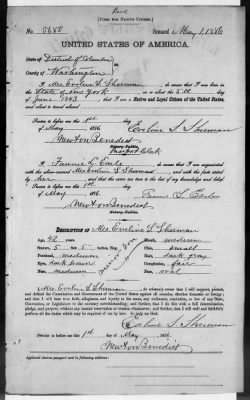 Paid
[FORM FOR NATIVE CITIZEN.]
No. 5680 Issued May 1, 1886
UNITED STATES OF AMERICA.
State of District of Columbia
County of Washington
I, Mrs Eveline L. Sherman, do swear that I was born in
State of New York on or about the 5th day
of June 1843, that I am a Native and Loyal Citizen of the United States,
and about to travel abroad.
Sworn to before me this 1st
day of May 1886
Newton Benedict
Passport Clerk
I, Fannie L. Earle, do swear that I am acquainted
with the above-named Mrs Eveline L. Sherman, and with the facts stated
by her, and that the same are true to the best of my knowledge and belief.
Sworn to before me this 1st
day of May 1886
Newton Benedict
Notary-Public.
DESCRIPTION OF Mrs. Eveline L. Sherman
Age: 42 years. Mouth: medium
Stature: 5 feet 5 inches, Eng. Chin: small
Forehead: medium Hair: dark gray
Eyes: dark brown Complexion: fair
Nose: medium Face: oval
I, Mrs. Eveline L. Sherman, do solemnly swear that I will support, protect,
and defend the Constitution and Government of the United States against all enemies, whether domestic or foreign;
and that I will bear true faith, allegiance, and loyalty to the same, any ordinance, resolution, or law of any State,
Convention, or Legislature to the contrary notwithstanding; and further, that I do this with a full determination,
pledge, and purpose, without any mental reservation or evasion whatsoever; and further, that I will well and faithfully
perform all the duties which may be required of me by law: So help me God.
Sworn to before me this 1st day of May, 1886.
Newton Benedict
Applicant desires passport sent to following address: